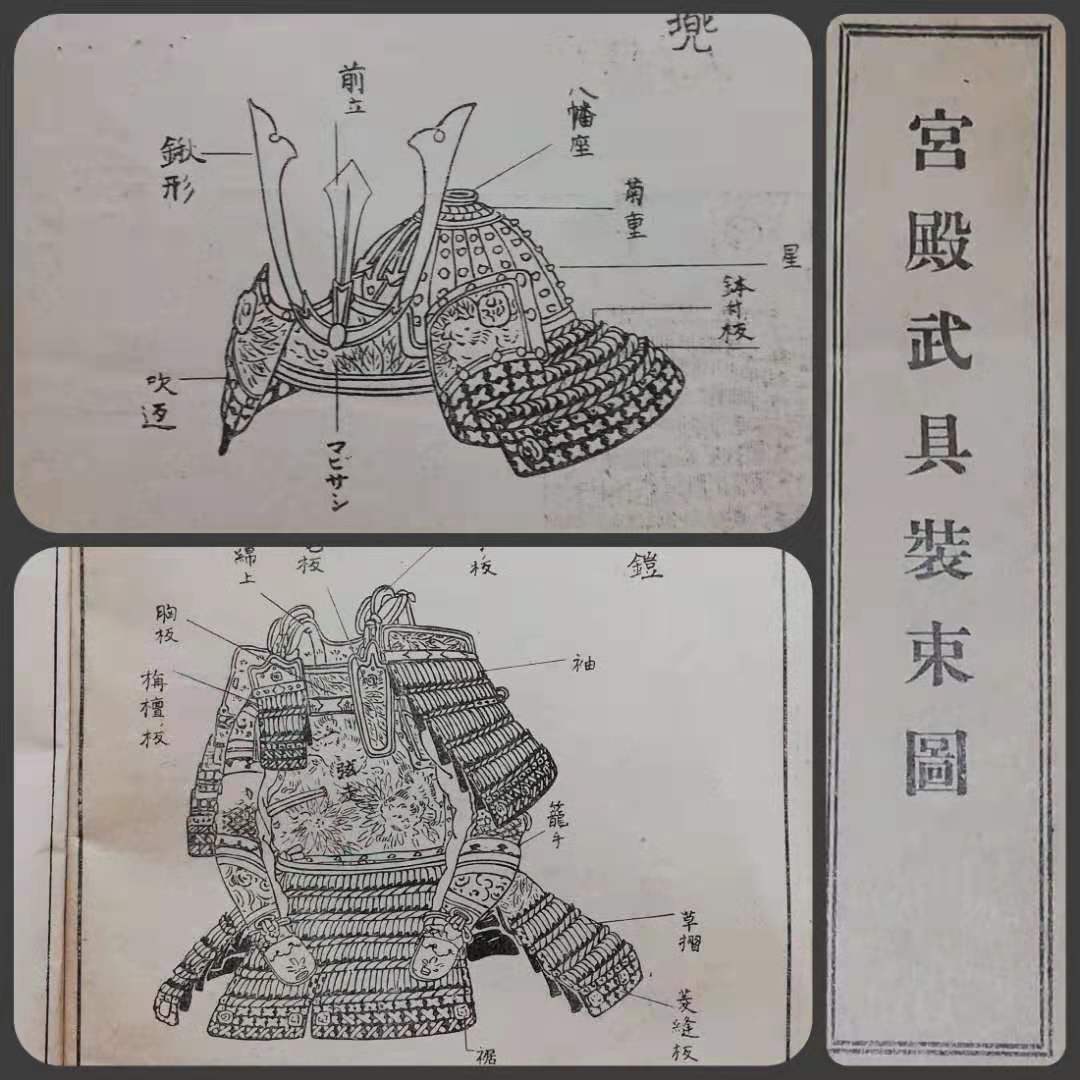 兜
前立
八幡座
鍬形
菊重
星
鉢付板
吹返
マビサシ
鎧
綿上
板
板
胸板
栴檀ノ板
袖
弦走
籠手
草摺
菱縫板
裾
宮殿武具装束圖